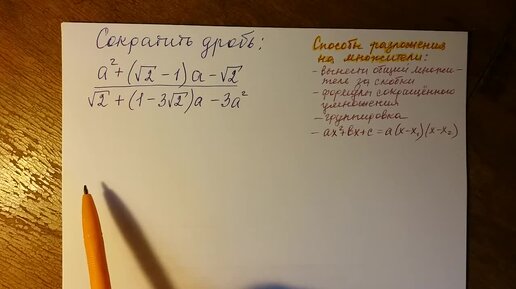 Сократить дробь:
a² + (√2 − 1)a − √2
√2 + (1 − 3√2)a − 3a²
Способы разложения
на множители:
- вынести общий множи-
тель за скобки
- формулы сокращённого
умножения
- группировка
- ax²+bx+c = a(x−x₁)(x−x₂)